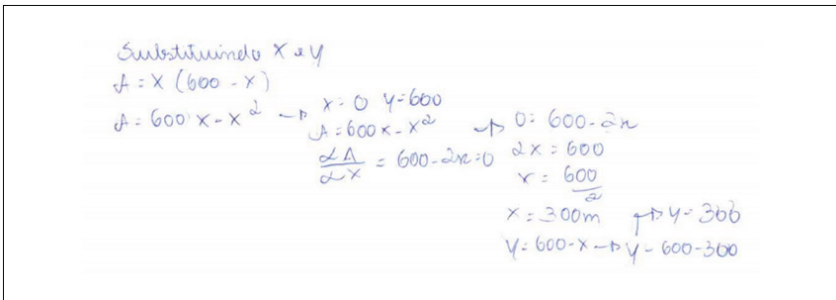 Substituindo x e y
A = x (600 - x)
A = 600 x - x²
→ x = 0 y = 600
A = 600x - x²
dA/dx = 600 - 2x = 0
→ 0 = 600 - 2x
2x = 600
x = 600/2
x = 300m → y = 300
y = 600 - x → y = 600 - 300